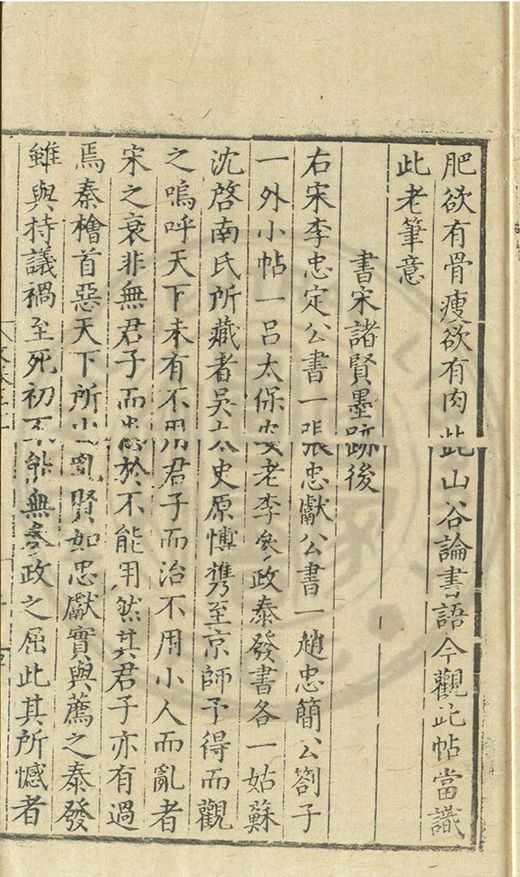 肥欲有骨瘦欲有肉此山谷論書語今觀此帖當識
此老筆意
書宋諸賢墨跡後
右宋李忠定公書一張忠獻公書一趙忠簡公劄子
一外小帖一呂太保安老李參政泰發書各一姑蘇
沈啓南氏所藏者吳太史原愽携至京師予得而觀
之嗚呼天下未有不用君子而治不用小人而亂者
宋之衰非無君子而患於不能用然其君子亦有過
焉秦檜首惡天下所亂賢如忠獻實與薦之泰發
雖與持議禍至死初不能無參政之屈此其所憾者